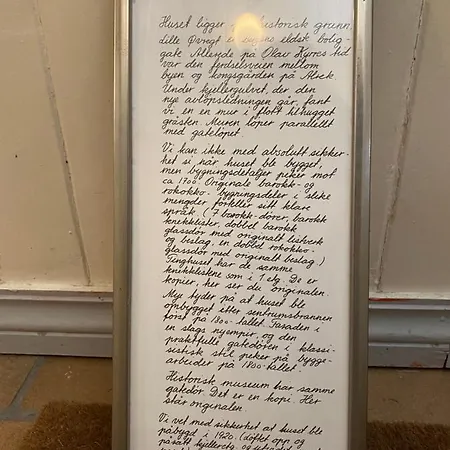 Huset ligger på historisk grunn,
Lille Øvregt er byens eldste bolig-
gate. Allerede på Olav Kyrres tid
var den ferdselsveien mellom
byen og kongsgården på Alrek.
Under kjellergulvet, der den
nye avløpsledningen går, fant
vi en en mur i flott tilhugget
gråsten. Muren løper parallelt
med gateløpet.
Vi kan ikke med absolutt sikker-
het si når huset ble bygget,
men bygningsdetaljer peker mot
ca 1700. Originale barokk- og
rokokko- bygningsdeler i slike
mengder forteller sitt klare
språk. (7 barokk-dører, barokk
knekklister, dobbel barokk
glassdør med originalt listverk
og beslag, en dobbel rokokko-
glassdør med originalt beslag.)
Tinghuset har de samme
knekklistene som i 1.etg. De er
kopier, her ser du originalen.
Mye tyder på at huset ble
ombygget etter sentrumsbrannen
først på 1800-tallet. Fasaden i
en slags nyempir, og den
praktfulle gatedøren i klassi-
sistisk stil peker på bygge-
arbeider på 1800-tallet.
Historisk museum har samme
gatedør. Det er en kopi. Her
står originalen.
Vi vet med sikkerhet at huset ble
påbygd i 1920. (loftet opp og
påsatt kjelleretg. og